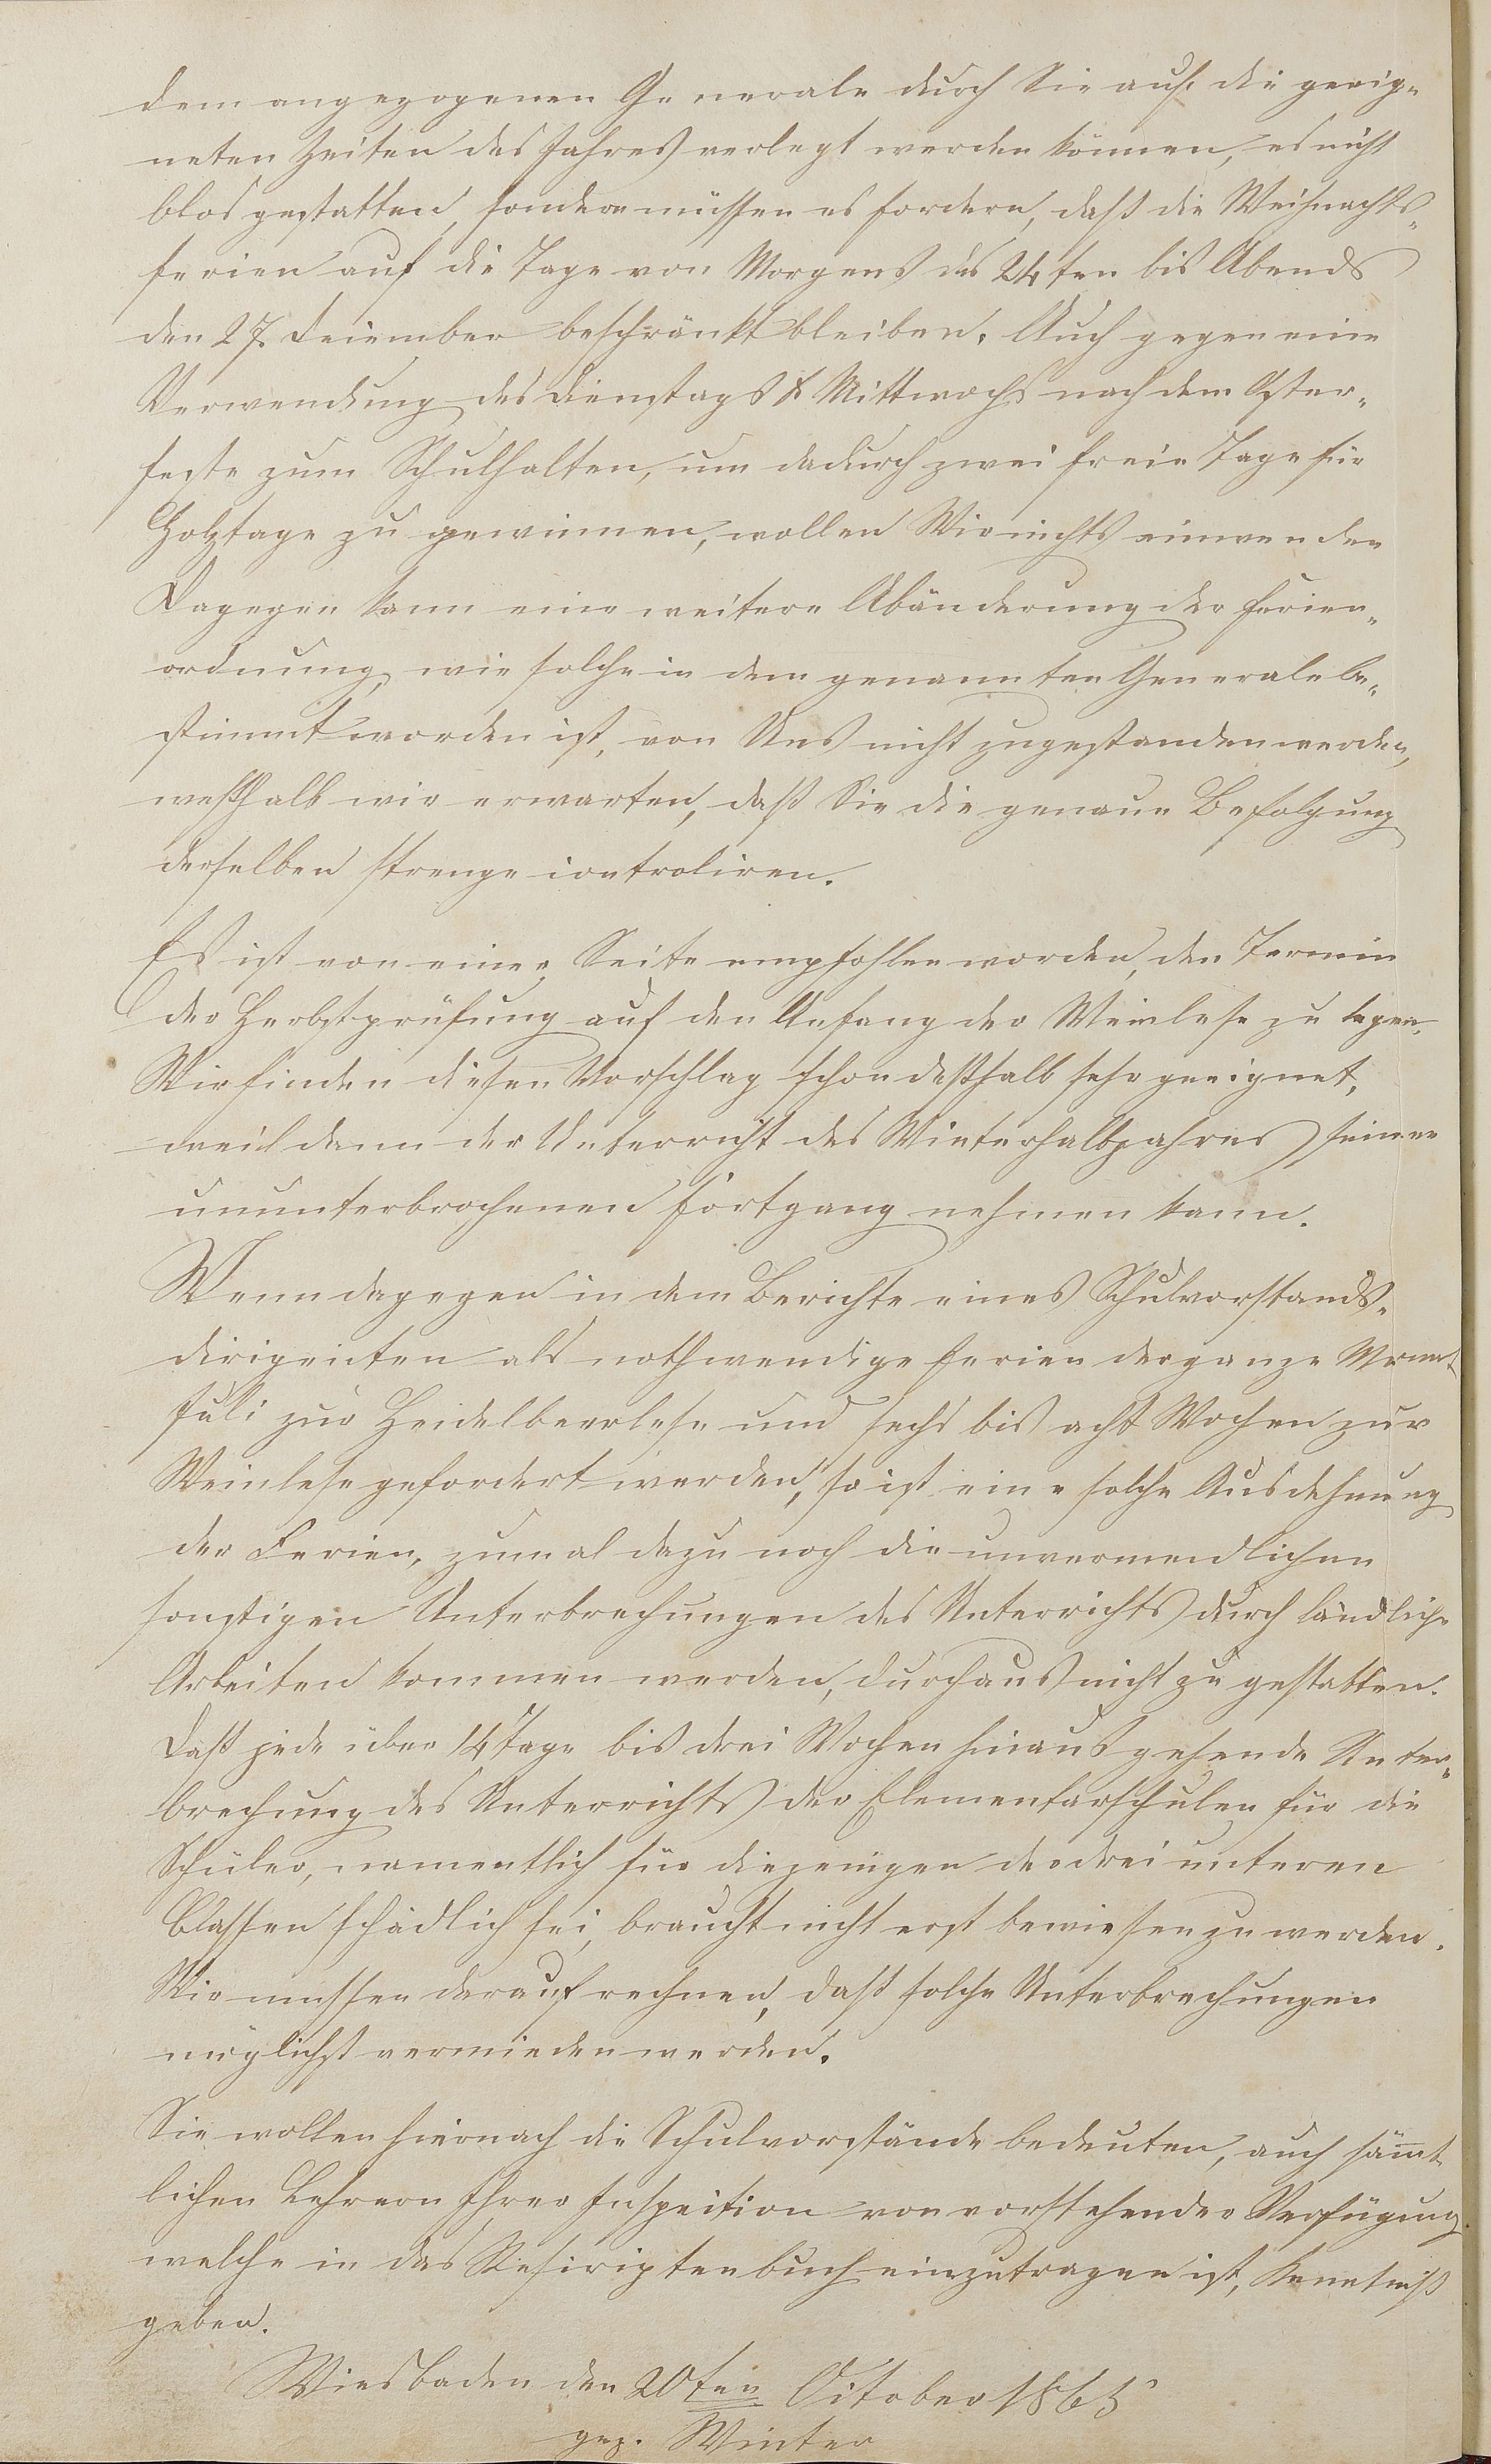 dem angezogenen Generale durch Sie auf die geeig-
neten Zeiten des Jahres verlegt werden können, es nicht
blos gestatten, sondern müssen es fordern, daß die Weihnachts-
ferien auf die Tage von Morgens des 24ten bis Abends
den 27. Dezember beschränkt bleiben. Auch gegen eine
Verwendung des Dienstags & Mittwochs nach dem Oster-
feste zum Schulhalten, um dadurch zwei freie Tage für
Holztage zu gewinnen, wollen Wir nichts einwenden
Dagegen kann eine weitere Abänderung der Ferien-
ordnung, wie solche in dem genannten Generale be-
stimmt worden ist, von Uns nicht zugestanden werden,
weßhalb wir erwarten, daß Sie die genaue Befolgung
derselben strenge controliren.
Es ist von einer Seite empfohlen worden, den Termin
der Herbstprüfung auf den Anfang der Weinlese zu legen.
Wir finden diesen Vorschlag schon deßhalb sehr geeignet,
weil dann der Unterricht des Winterhalbjahres seinen
ununterbrochenen Fortgang nehmen kann.
Wenn dagegen in dem Berichte eines Schulvorstands-
dirigenten als nothwendige Ferien der ganze Monat
Juli zur Heidelbeerlese und sechs bis acht Wochen zur
Weinlese gefordert werden, so ist eine solche Ausdehnung
der Ferien, zumal dazu noch die unvermeidlichen
sonstigen Unterbrechungen des Unterrichts durch ländliche
Arbeiten kommen werden, durchaus nicht zu gestatten.
Daß jede über 14 Tage bis drei Wochen hinaus gehende Unter-
brechung des Unterrichts der Elementarschulen für die
Schüler, namentlich für diejenigen der drei unteren
Classen schädlich sei, braucht nicht erst bewiesen zu werden.
Wir müssen darauf rechnen, daß solche Unterbrechungen
möglichst vermieden werden.
Sie wollen hiernach die Schulvorstände bedeuten, auch säm̅t
lichen Lehrern Ihrer Inspection von vorstehender Verfügung
welche in das Rescriptenbuch einzutragen ist, Kenntniß
geben.
Wiesbaden den 20ten October 1865
gez. Winter